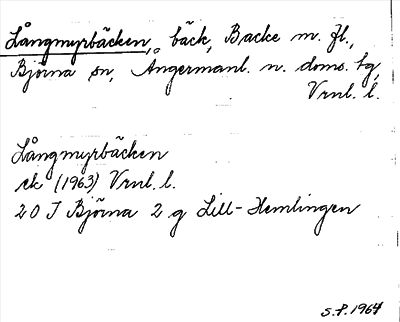 Långmyrbäcken, bäck, Backe m. fl.,
Björna sn, Ångermanl. n. doms. tg,
Vrnl. l.
Långmyrbäcken
ek (1963) Vrnl. l.
20 J Björna 2 g Lill-Hemlingen
S.P. 1964